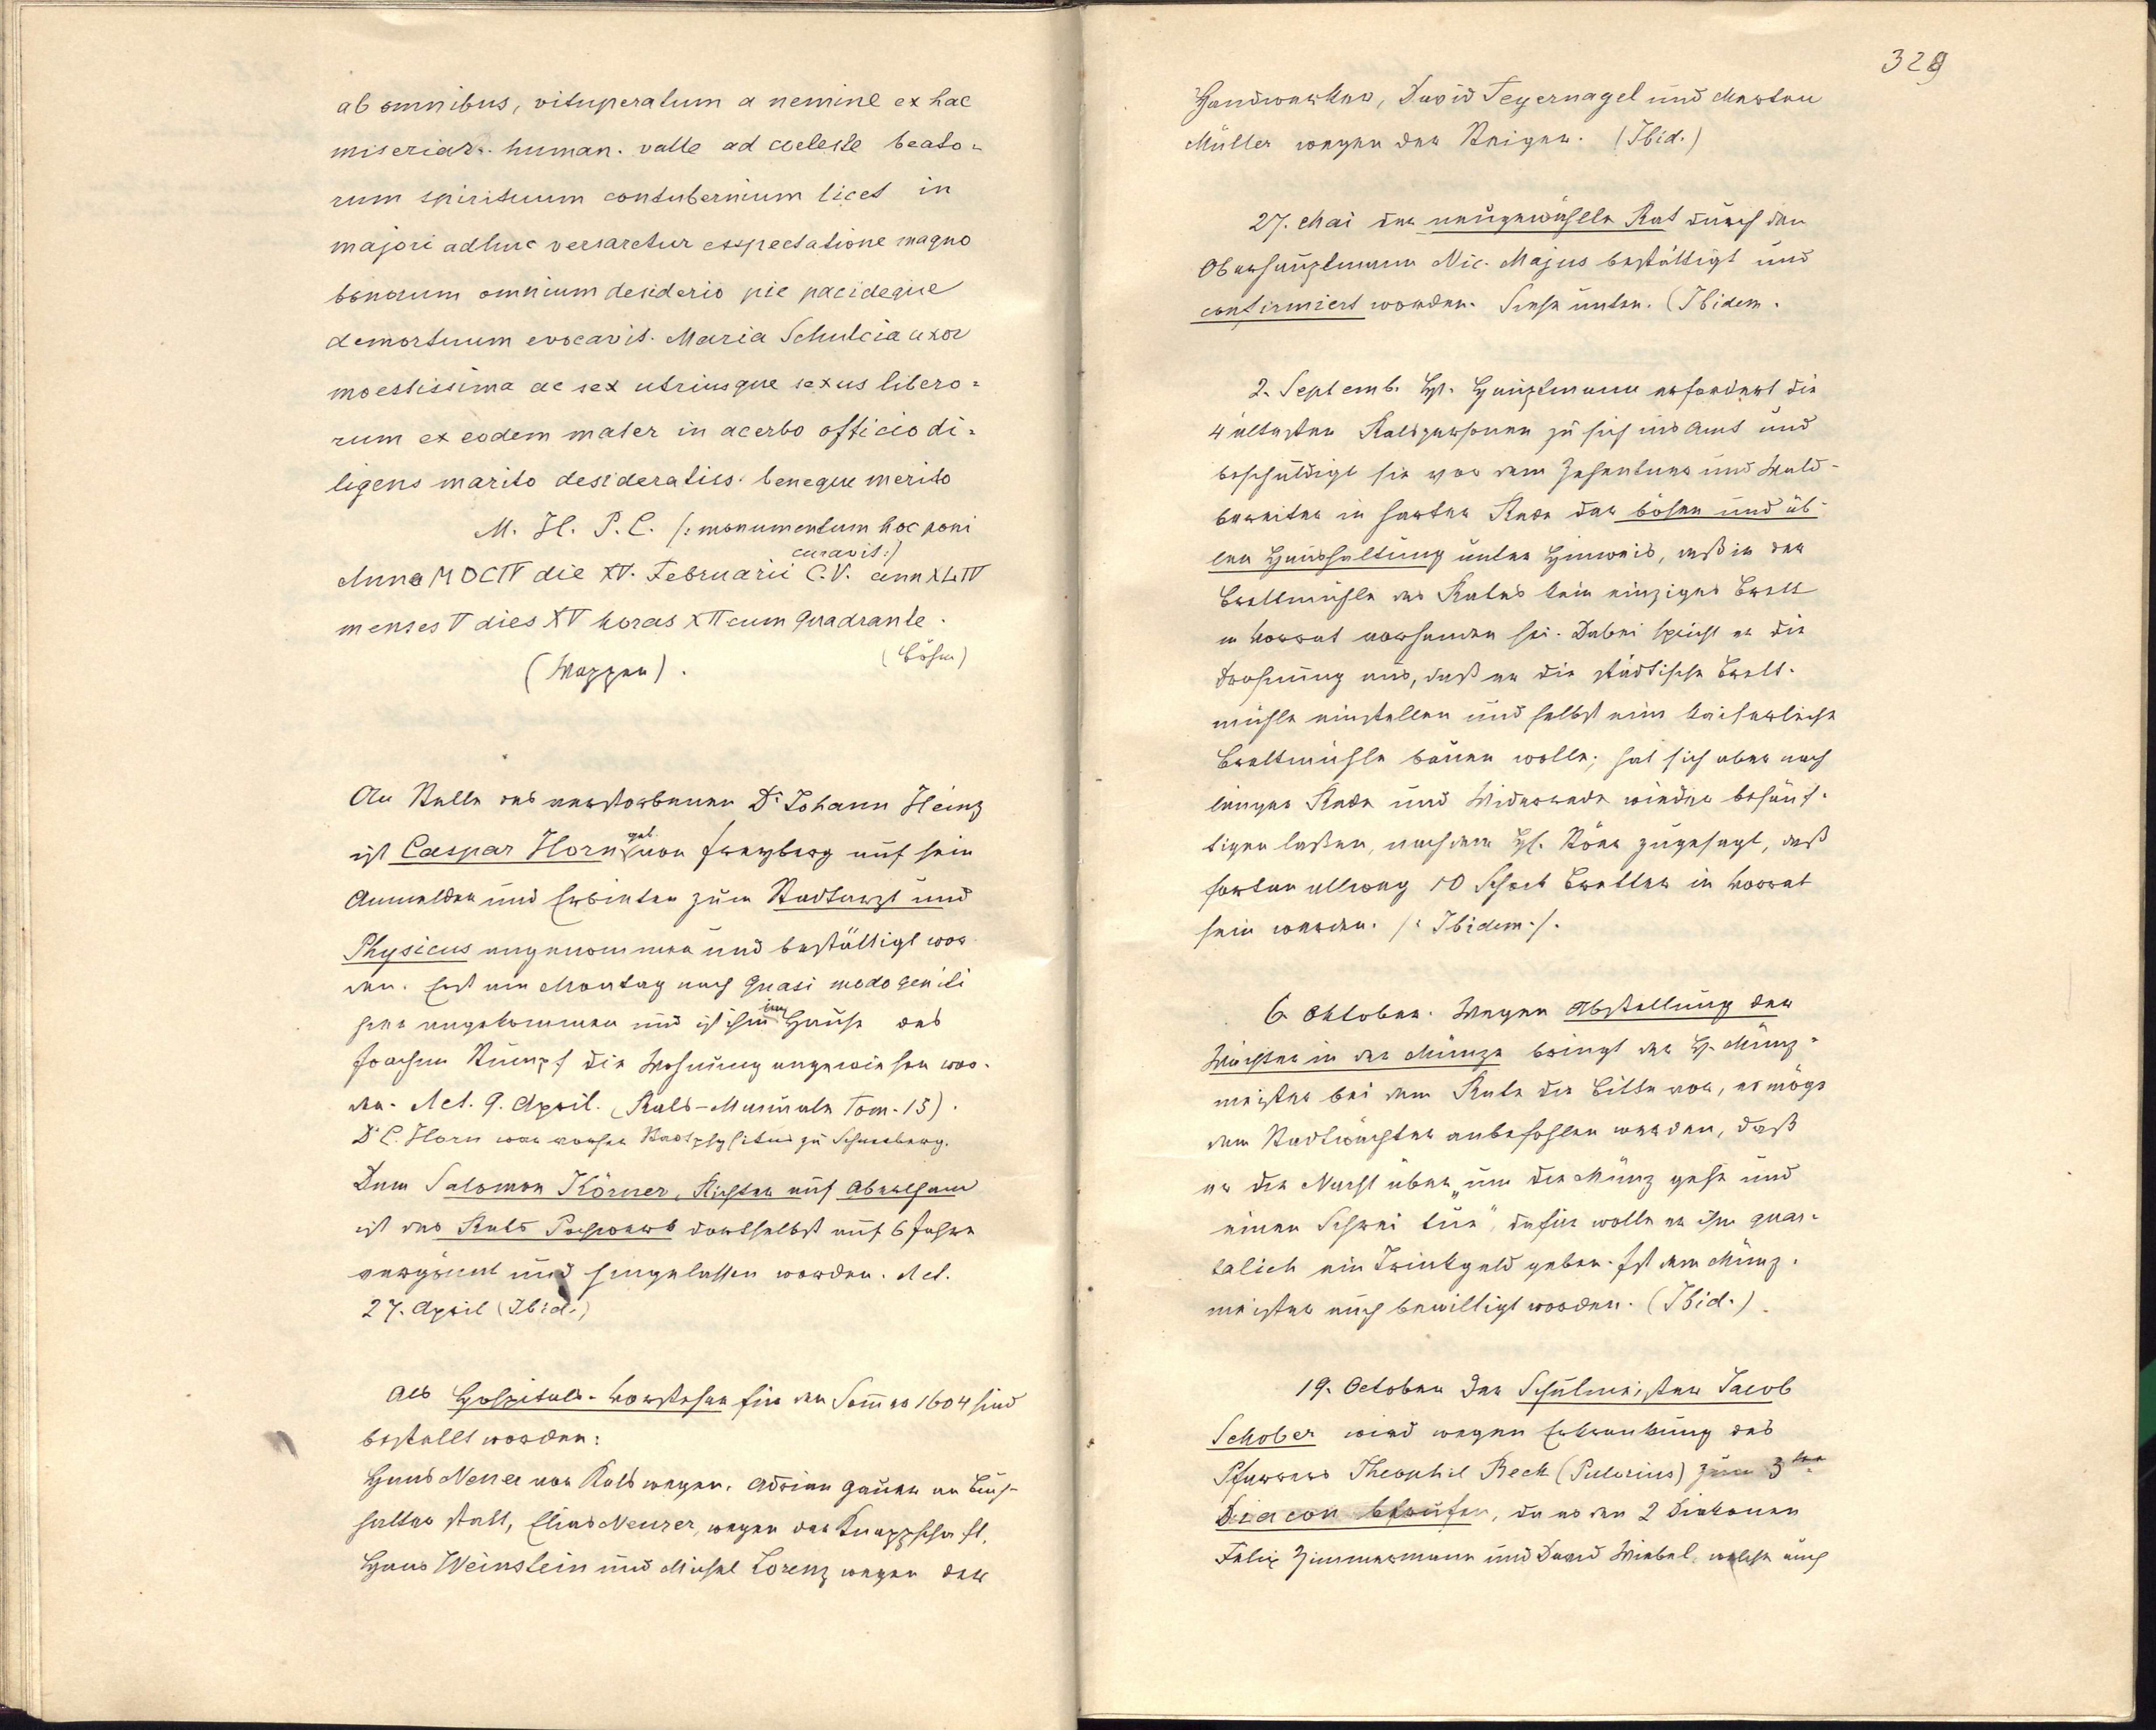 ab omnibus, vituperatum a nemine ex hac
miseriar. human. valle ad coeleste beato=
rum spirituum contubernium licet in
majori adhuc versaretur exspectatione magno
bonorum omnium desiderio pie pacideque
demortuum evocavit. Maria Schulcia uxor
moestissima ac sex utriusque sexus libero=
rum ex eodem mater in acerbo officio di=
ligens marito desideratiss. beneque merito
M. H. P. C. /: monumentum hoc poni
curavit :/
Anno MDCIV die XV. Februarii C.V. ann XLIV
menses V dies XV horas XII cum quadrante.
(Böhm)
(Wappen).
An Stelle des verstorbenen Dr Johann Heinz
ist Caspar Horn geb. von Freyberg auf sein
Anmelden und Erbieten zum Stadtarzt und
Physicus angenommen und bestättigt wor
den. Erst am Montag nach Quasi modo geniti
hero angekommen und ist ihm im Hause des
Joachim Stumpf die Wohnung angewiesen wor-
den. Act. 9. April. (Rats-Manuale Tom. 15).
Dr C. Horn war vorher Stadtphysikus zu Schneeberg.
Dem Salomon Körner, Richter auf Abertham
ist des Rats Pochwerk dortselbst auf 6 Jahre
vergünt und hingelassen worden. Act.
27. April (Ibid.)
Als Hospitals-Vorsteher für den Sommer 1604 sind
bestellt worden:
Hans Neser von Rats wegen. Adrian Gauer an Buch-
halter statt, Elias Neuzer, wegen der Knappschaft,
Hans Weinstein und Michel Lorenz wegen der
329
Handwerker, David Feyernagel und Merten
Müller wegen der Steiger. (Ibid.)
27. Mai der neugewählte Rat durch den
Oberhauptmann Nic. Majus bestättigt und
confirmiert worden. Siehe unten. (Ibidem.
2. Septemb. Hr. Hauptmann erfordert die
4 ältesten Ratspersonen zu sich ins Amt und
beschuldigt sie vor dem Zehentner und Wald-
bereiter in harter Rede der bösen und üb-
len Haushaltung unter Hinweis, daß in der
Brettmühle des Rates kein einziges Brett
in Vorrat vorhanden sei. Dabei spricht er die
Drohung aus, daß er die städtische Brett-
mühle einstellen und selbst eine kaiserliche
Brettmühle bauen wolle; hat sich aber nach
langer Rede und Widerrede wieder besänf-
tigen laßen, nachdem H. Röer zugesagt, daß
fortan allweg 10 Schock Bretter in Vorrat
sein werden. /: Ibidem :/.
6 Oktober. Wegen Abstellung der
Wächter in der Münze bringt der H. Münz=
meister bei dem Rate die Bitte vor, es möge
dem Stadtwächter anbefohlen werden, daß
er die Nacht über „um die Münz gehe und
einen Schrei tue", dafür wolle er ihm quar-
talich ein Trinkgeld geben. Ist dem Münz-
meister auch bewilligt worden. (Ibid.)
19. October Der Schulmeister Jacob
Schober wird wegen Erkrankung des
Pfarrers Theophil Beck (Pistorius) zum 3ten
Diacon berufen, da es den 2 Diakonen
Felix Zimmermann und David Wiebel, welche auch